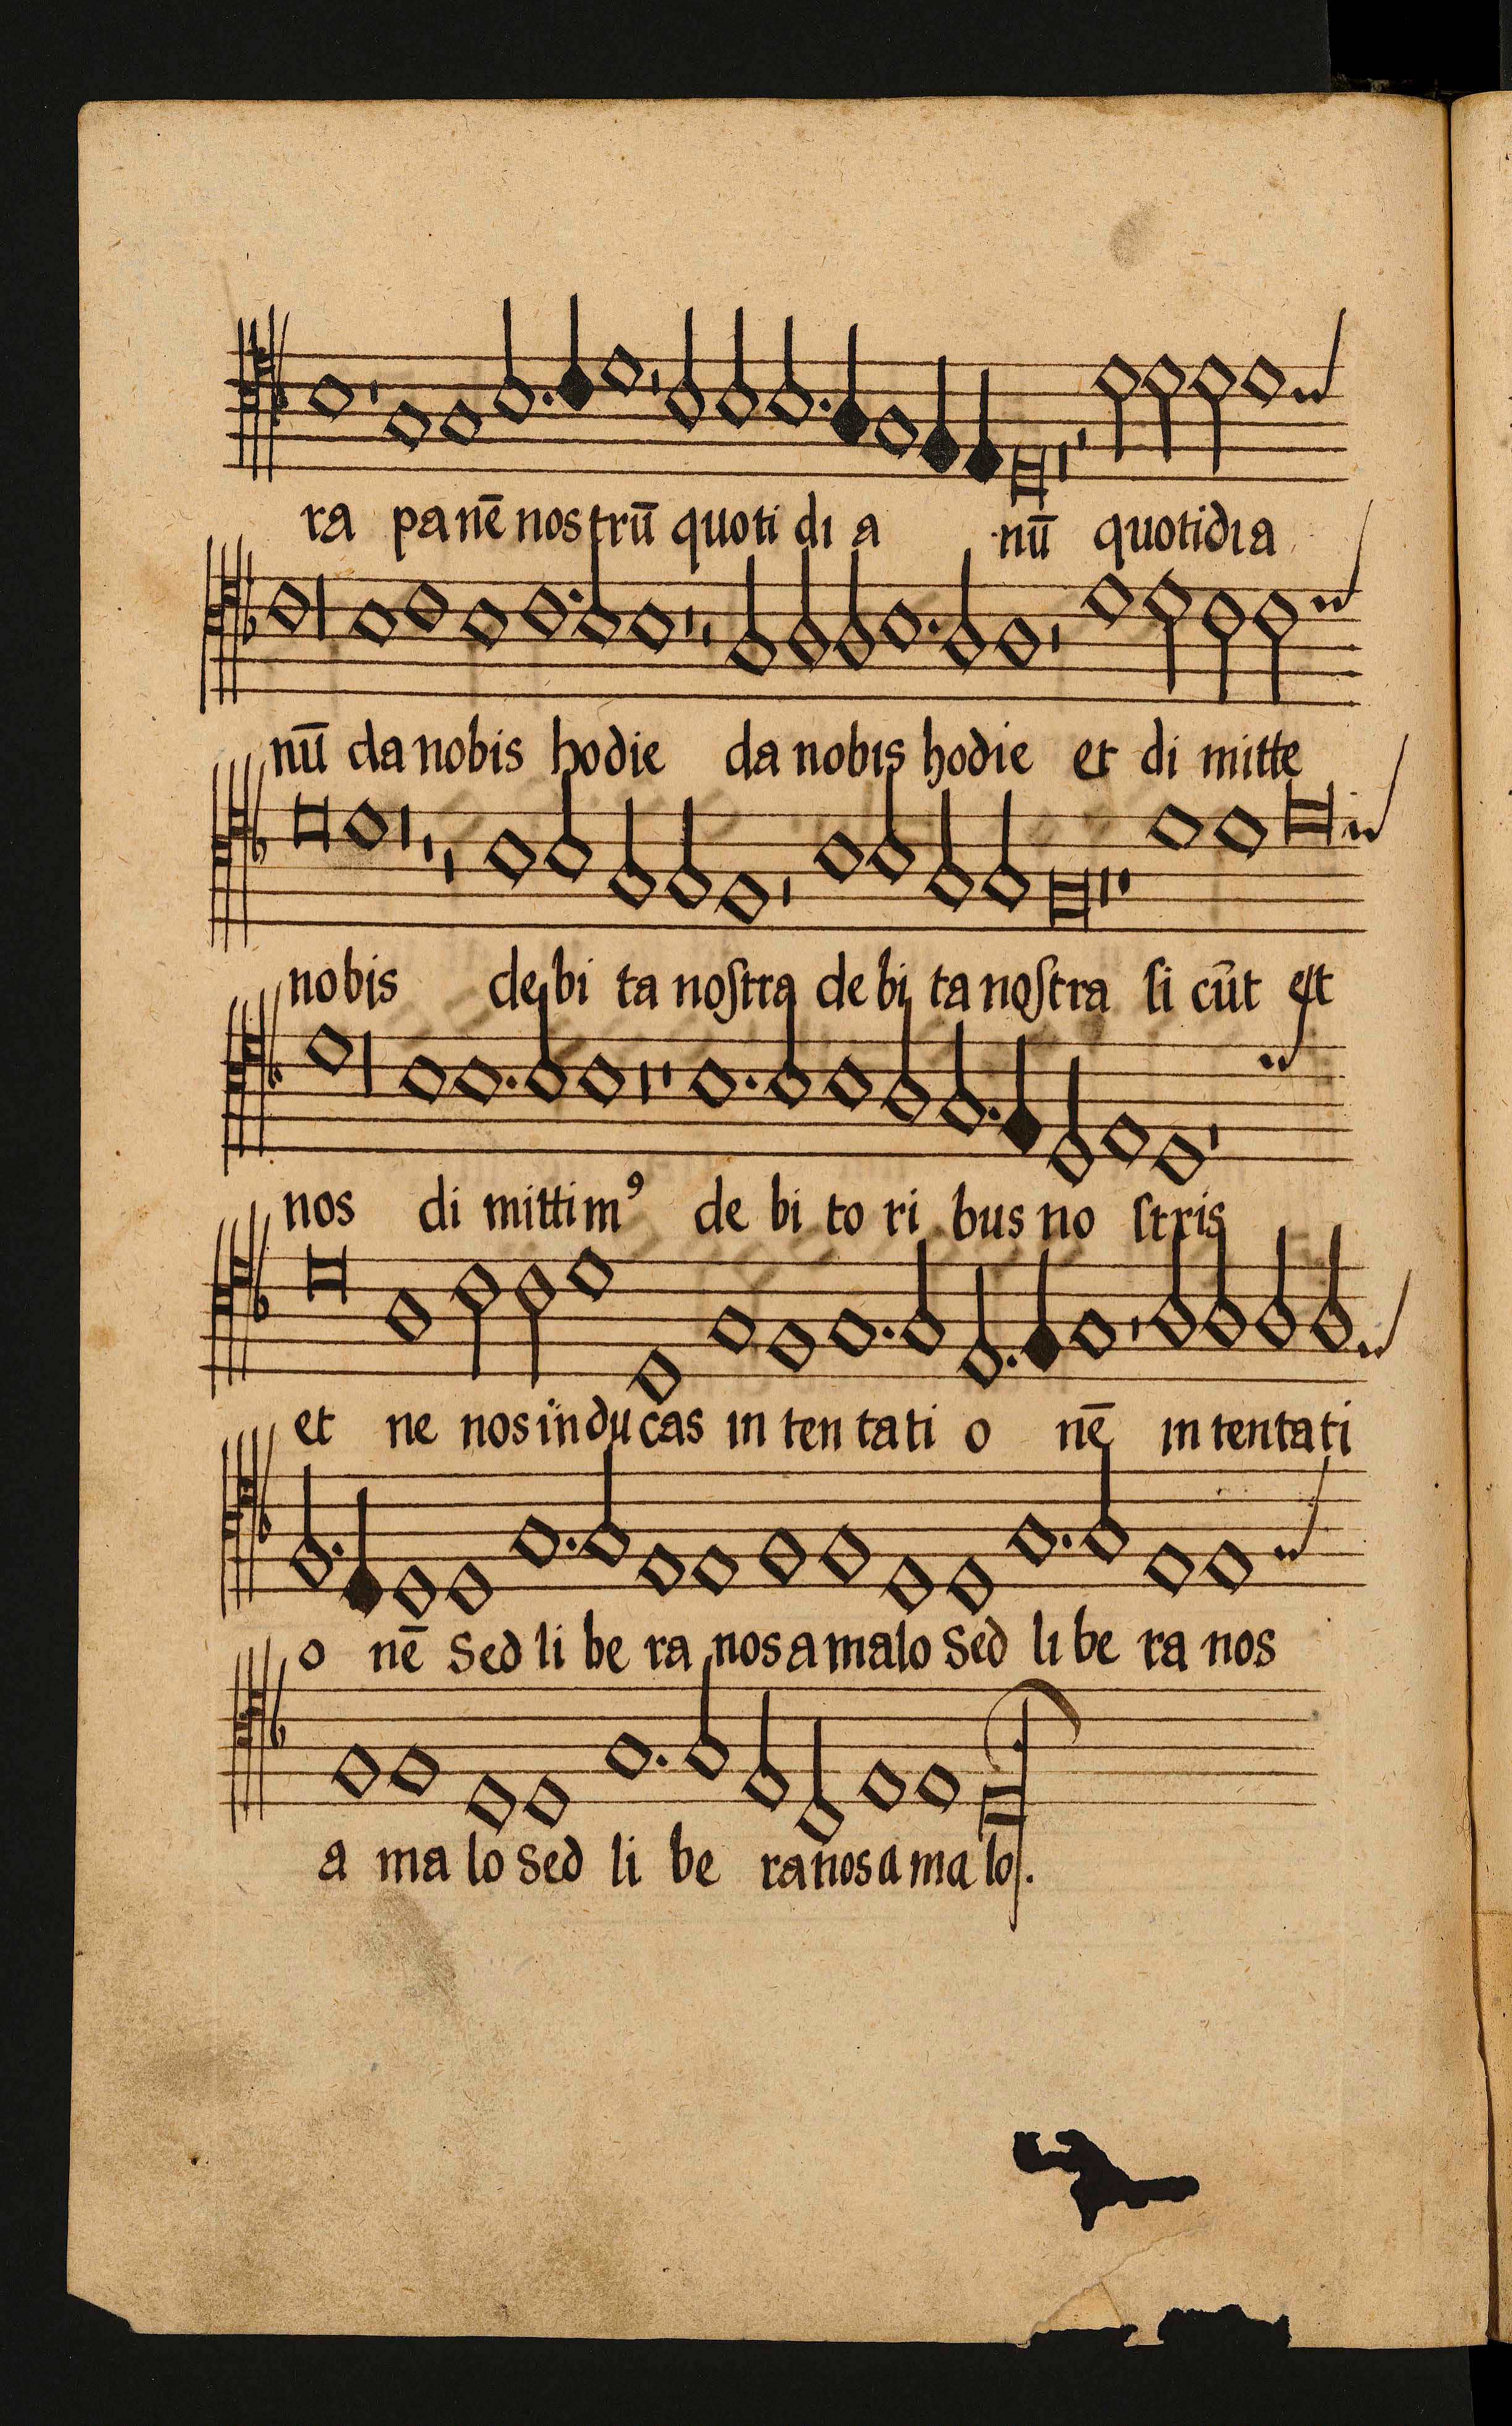 ra panē nostrū quoti di a nū quotidia
nū da nobis hodie da nobis hodie et di mitte
nobis de bi ta nostra de bi ta nostra si cūt est
nos di mittimꝰ de bi to ri bus no stris
et ne nos inducas in ten ta ti o nē in tentati
o nē Sed li be ra nos a malo Sed li be ra nos
a ma lo Sed li be ra nos a ma lo.